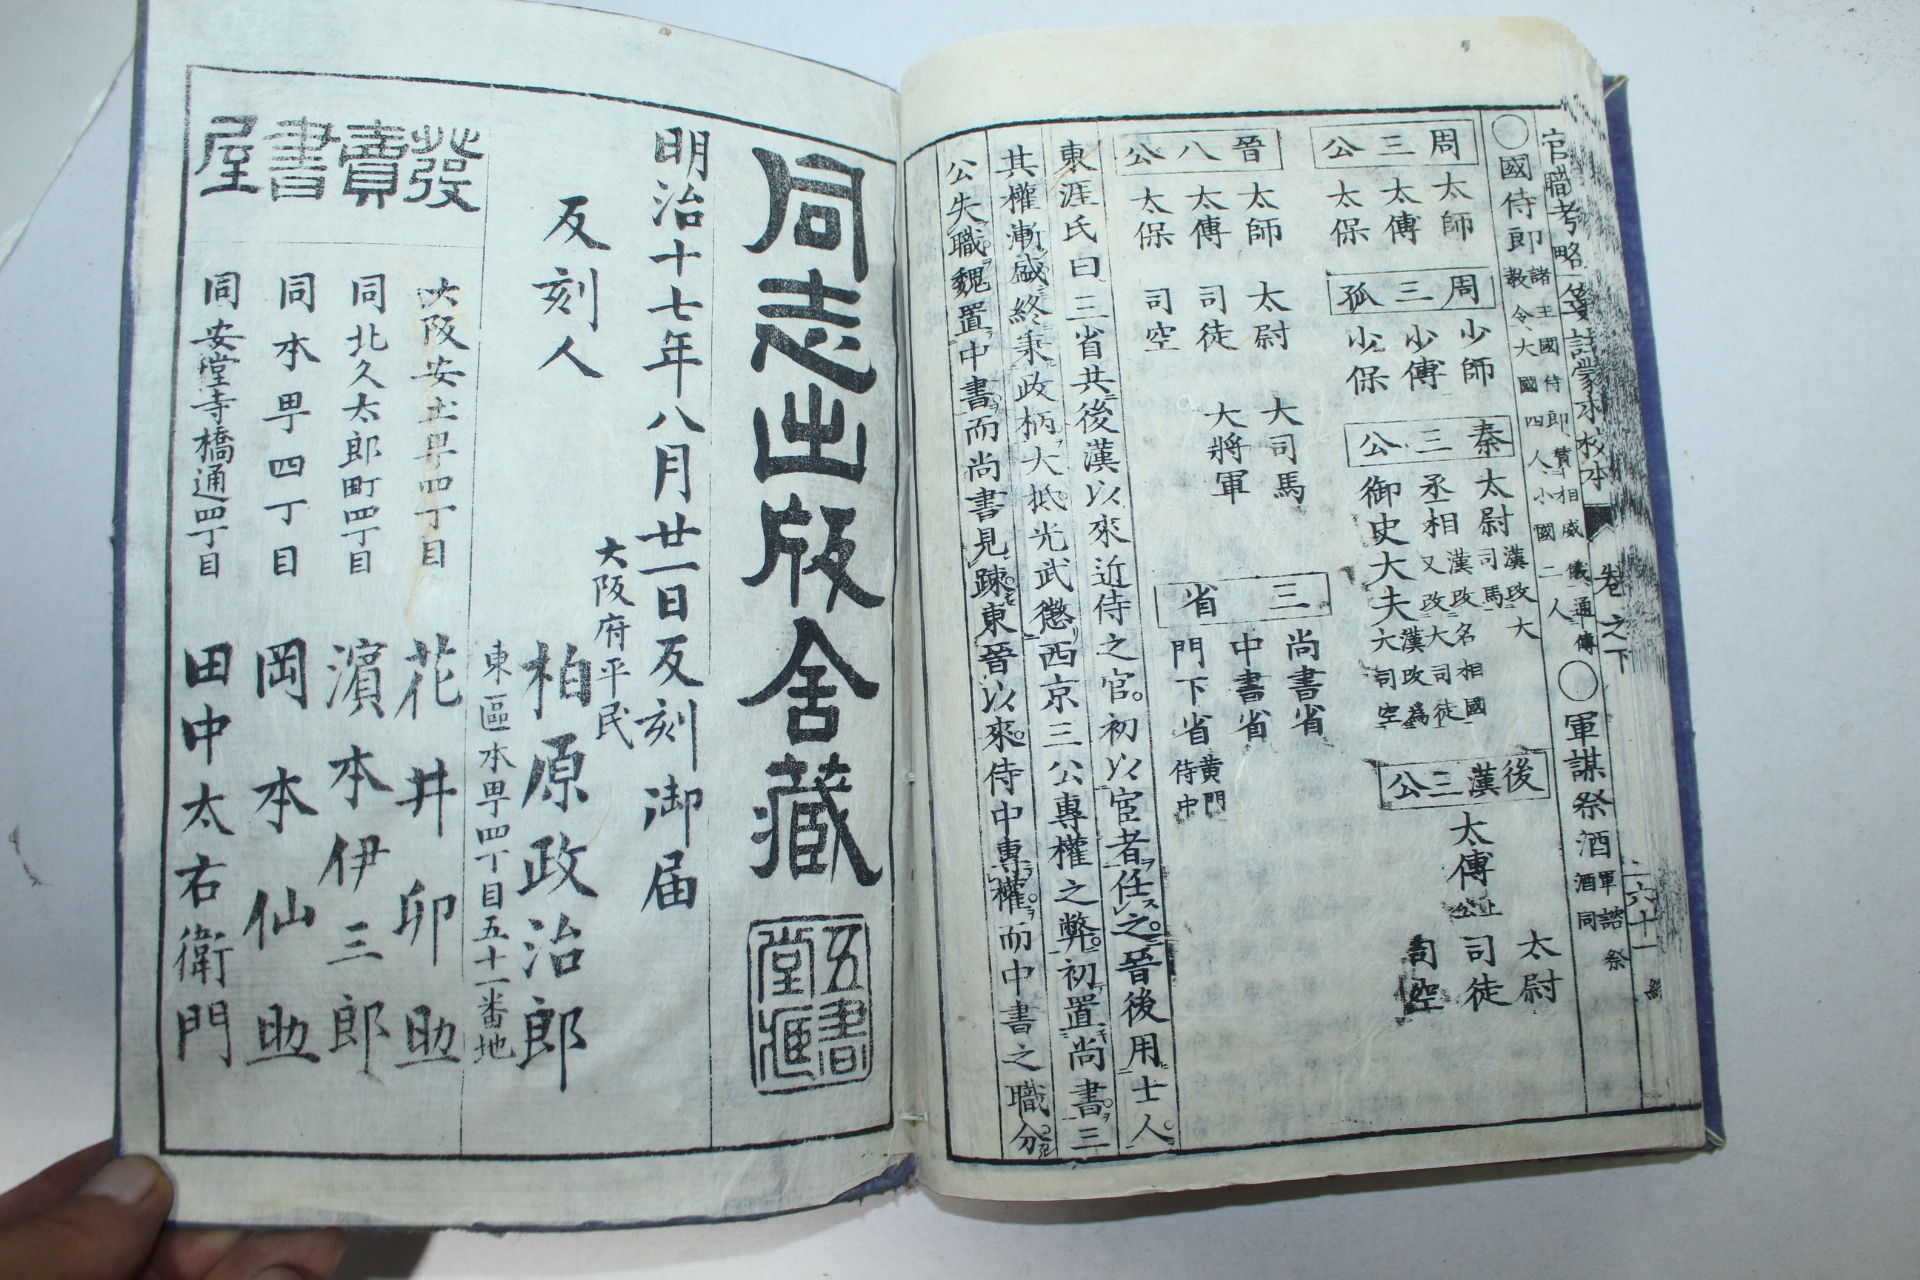 官職考略箋註蒙求校本
卷之下
六十一
○國侍郎
諸王國侍郎贊相威儀通傳
教令大國四人小國二人
○軍謀祭酒
軍諮祭
酒同
周三公
太師
太傅
太保
周三孤
少師
少傅
少保
秦三公
太尉
漢改大
司馬
丞相
漢改名相國
又改大司徒
御史大夫
漢改為
大司空
後漢三公
太傅
公上
太尉
司徒
司空
晉八公
太師
太傅
太保
太尉
司徒
司空
大司馬
大將軍
三省
尚書省
中書省
門下省
黃門
侍中
東涯氏曰三省共後漢以來近侍之官初以宦者任之晉後用士人
其權漸盛終秉政柄大抵光武懲西京三公專權之弊初置尚書三
公失職魏置中書而尚書見踈東晉以來侍中專權而中書之職分
同志出版舍藏
五書堂
明治十七年八月廿一日反刻御届
反刻人
大阪府平民
柏原政治郎
東區本甼四丁目五十一番地
發賣書屋
大阪安土甼四丁目
花井卯助
同北久太郎町四丁目
濵本伊三郎
同本甼四丁目
岡本仙助
同安堂寺橋通四丁目
田中太右衛門